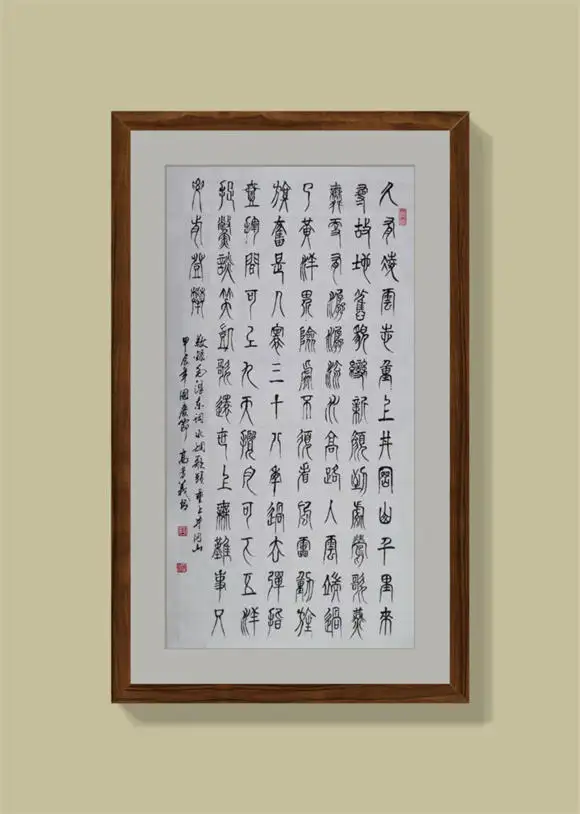 久有凌雲志重上井岡山千里來
尋故地舊貌變新顏到處鶯歌燕
舞更有潺潺流水高路入雲端過
了黃洋界險處不須看風雷動旌
旗奮是人寰三十八年過去彈指
壹揮間可上九天攬月可下五洋
捉鱉談笑凱歌還世上無難事只
要肯登攀
敬録毛澤东词水调歌頭重上井岡山
甲辰年國慶節 高孝義书